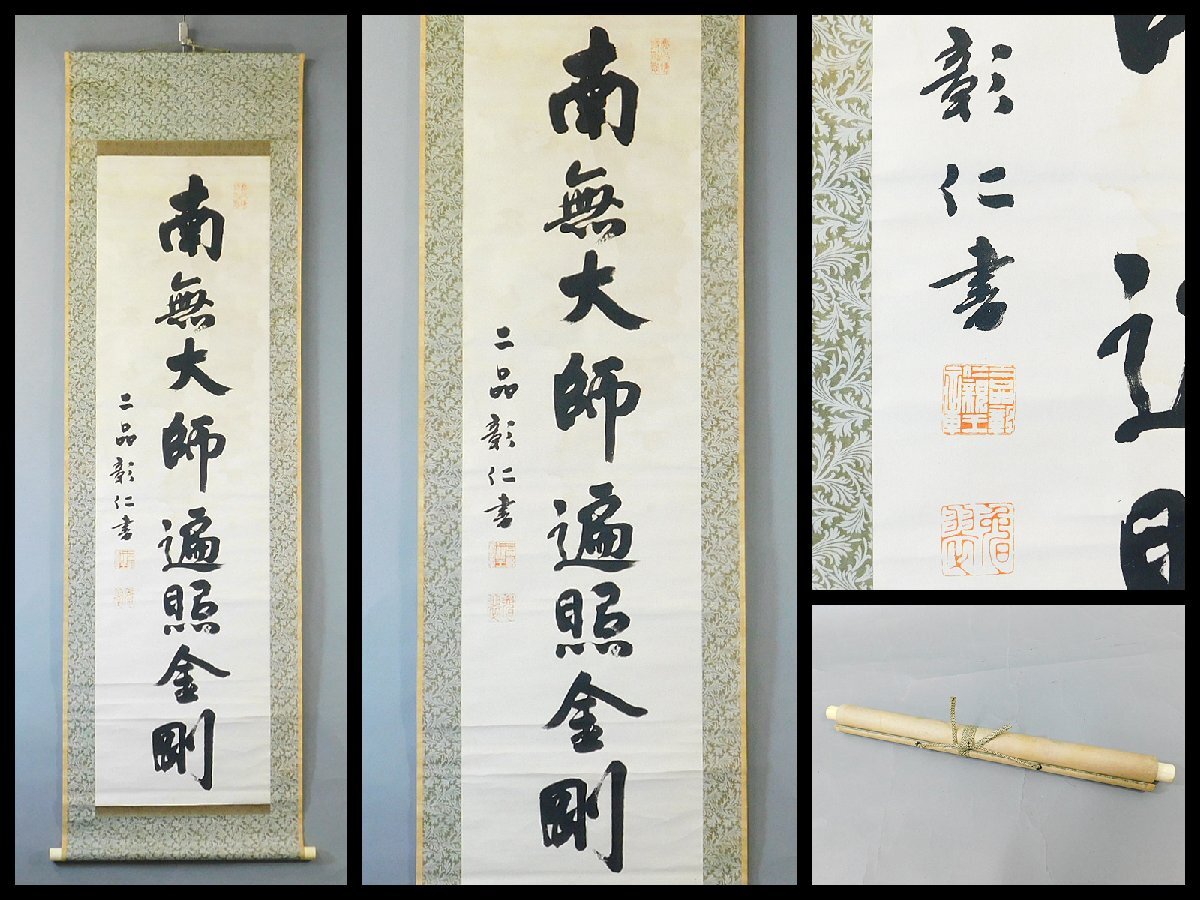 南無大師遍照金剛
二品彰仁書
南無大師遍照金剛
二品彰仁書
彰仁書